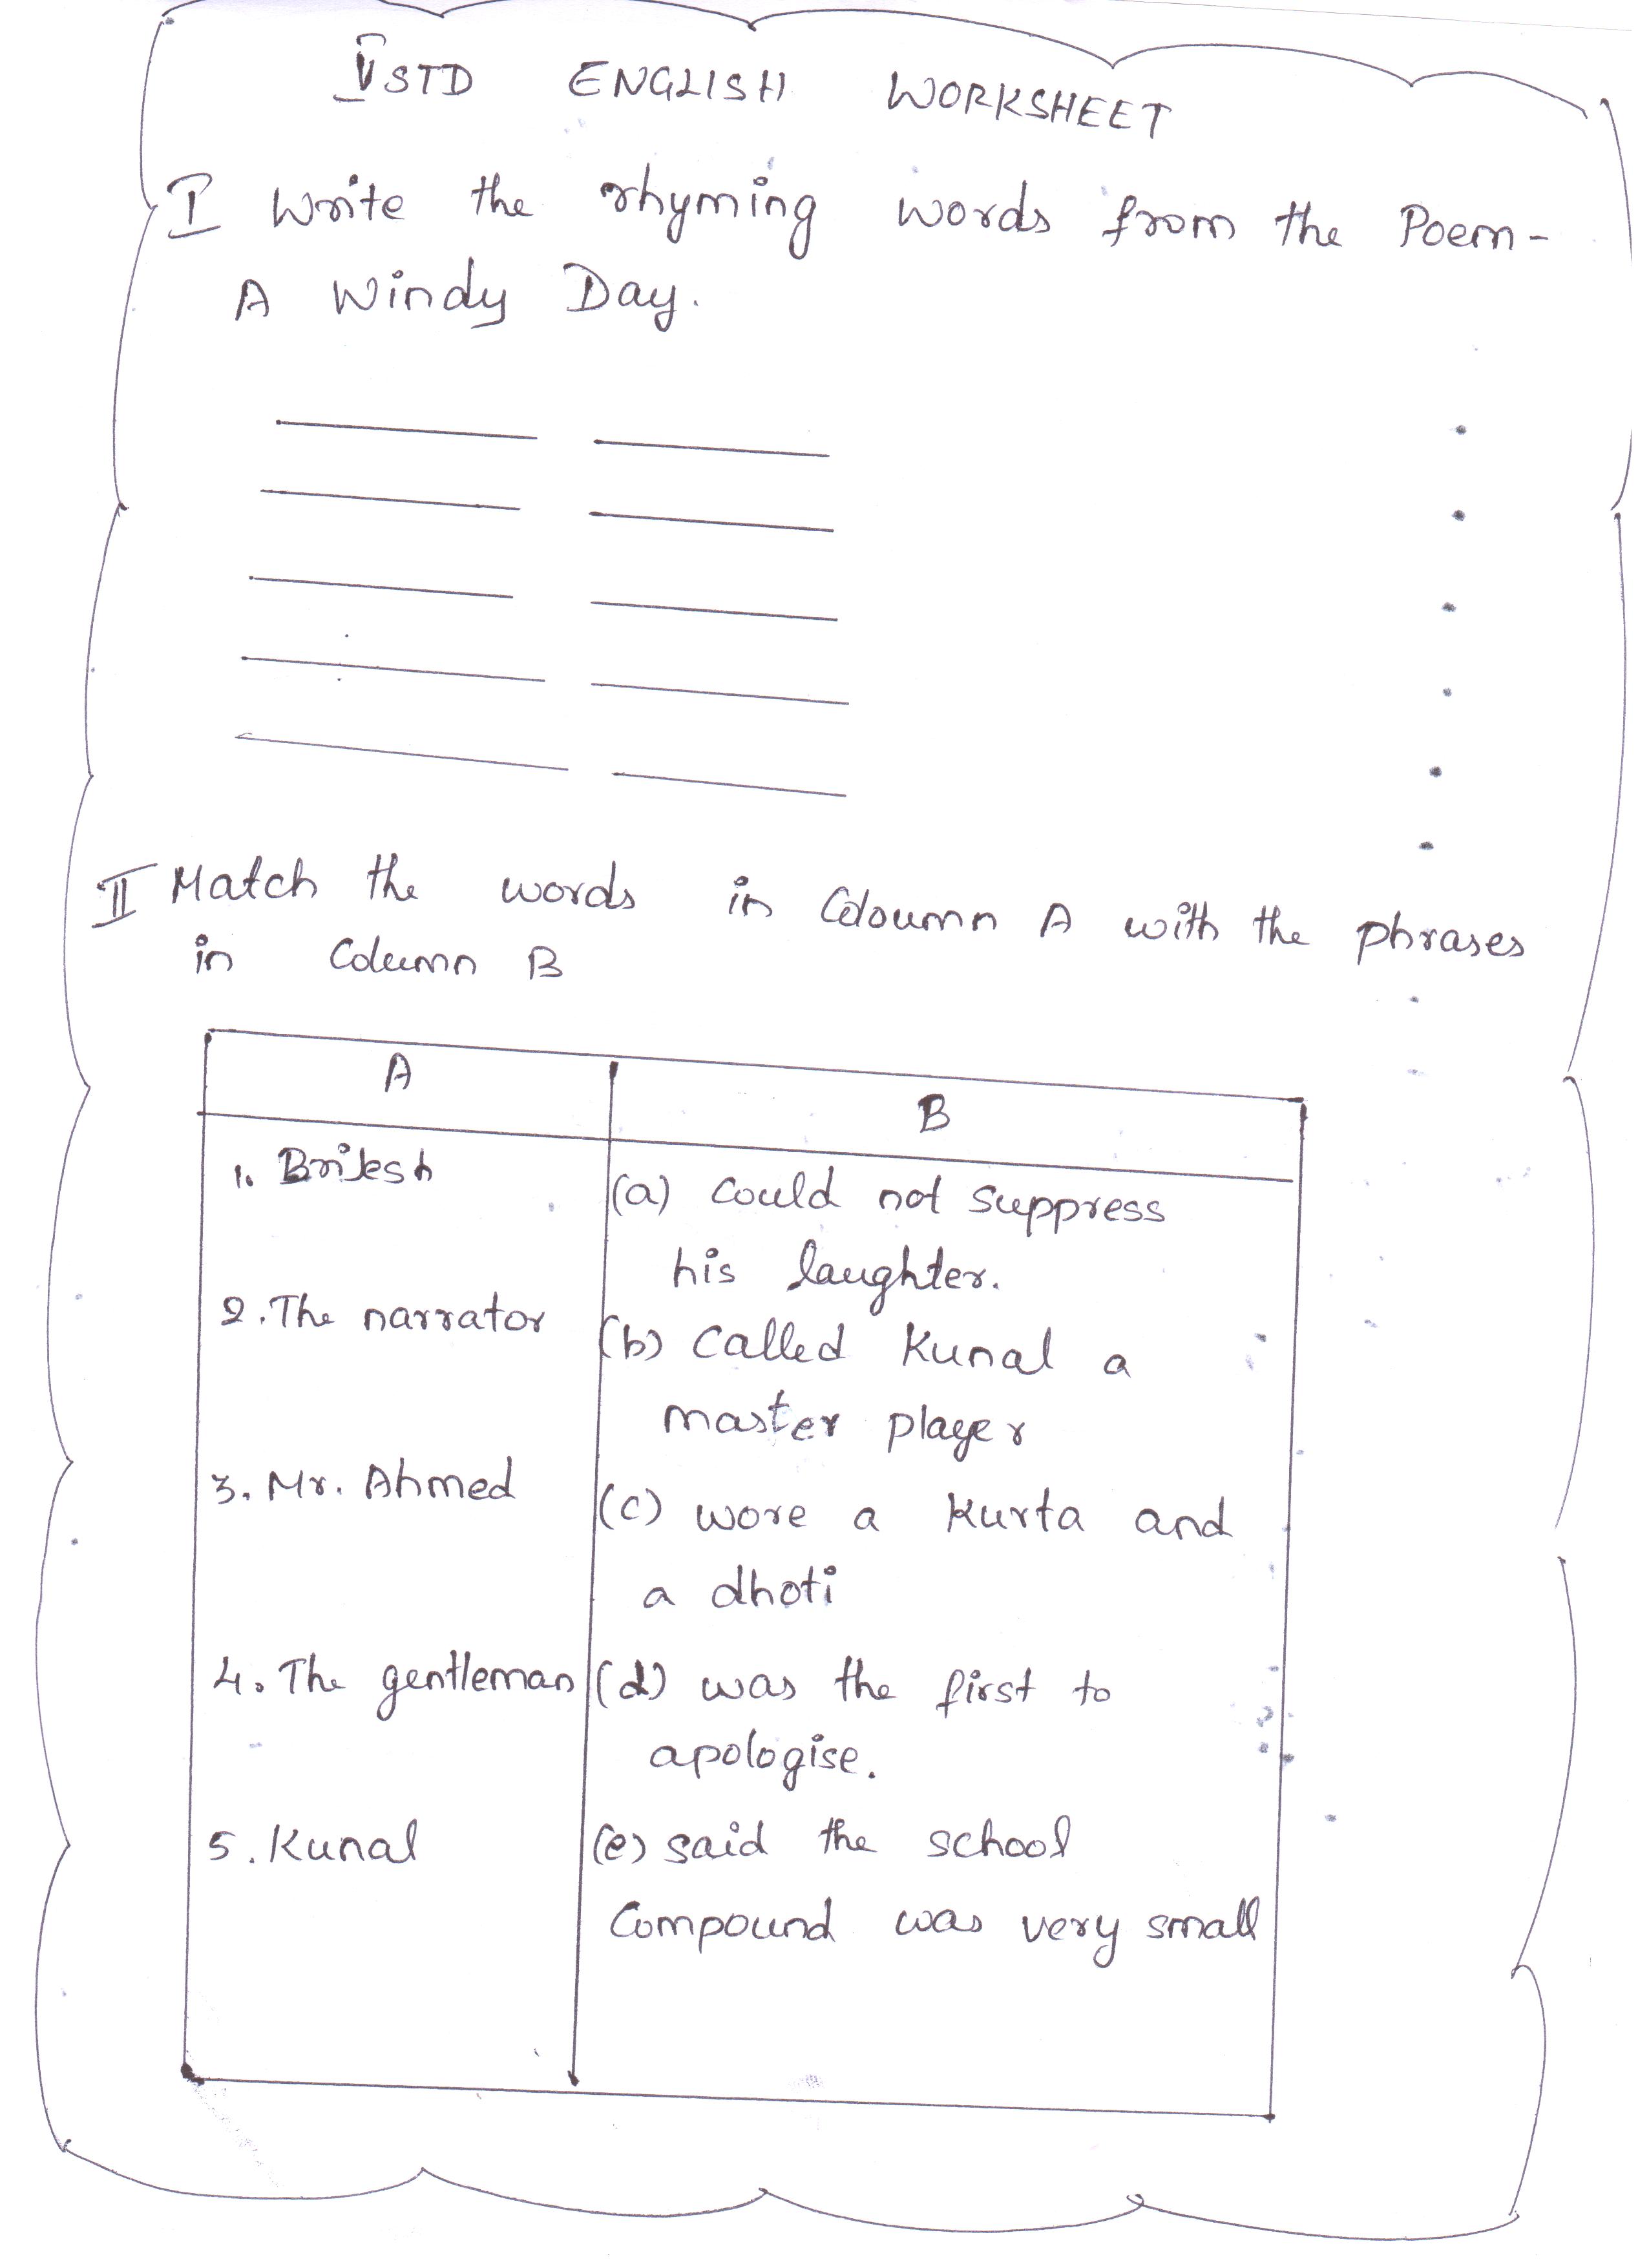 V STD ENGLISH WORKSHEET
I Write the rhyming words from the Poem-
A Windy Day.
II Match the words in Coloumn A with the phrases
in Column B
A
B
1. Brijesh
(a) could not suppress
his laughter.
2. The narrator
(b) called Kunal a
master player
3. Mr. Ahmed
(c) wore a kurta and
a dhoti
4. The gentleman
(d) was the first to
apologise.
5. Kunal
(e) said the school
Compound was very small